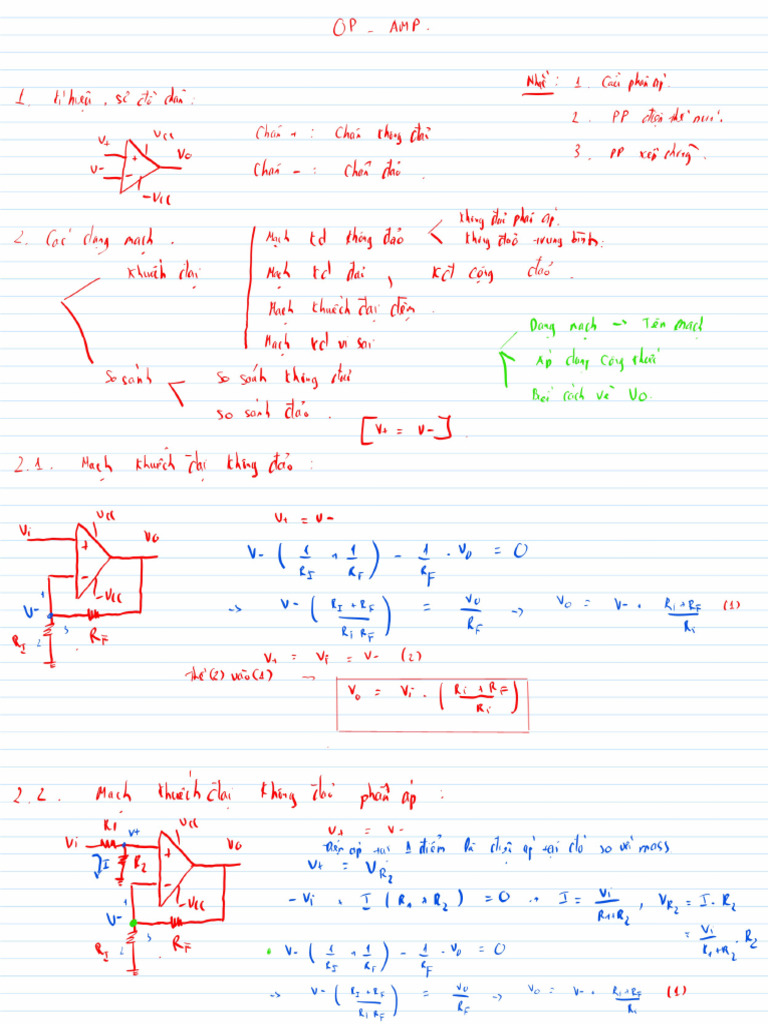 OP - AMP.
1. Kí hiệu, sơ đồ chân:
Nhớ: 1. Cầu phân áp.
2. PP điện thế nút.
3. PP xếp chồng.
V+ VCC V- VO -VCC + -
Chân + : Chân không đảo
Chân - : Chân đảo.
2. Các dạng mạch.
Khuếch đại
Mạch kđ không đảo
Không đảo phân áp.
Không đảo trung bình.
Mạch kđ đảo, kđ cộng đảo.
Mạch khuếch đại đệm.
Mạch kđ vi sai
So sánh
so sánh không đảo
so sánh đảo.
Dạng mạch -> Tên mạch
Áp dụng công thức
Biết cách vẽ VO.
[V+ = V-].
2.1. Mạch khuếch đại không đảo:
Vi VCC VO + - -VCC V- 1 2 3 RI RF
V+ = V-
V- (1/RI + 1/RF) - 1/RF . VO = 0
-> V- (RI + RF / Ri RF) = VO/RF -> VO = V- . Ri+RF/Ri (1)
V+ = Vi = V- (2)
Thế (2) vào (1) -> Vo = Vi . (Ri + RF / Ri)
2.2. Mạch khuếch đại không đảo phân áp:
Vi R1 V+ VCC VO I R2 + - -VCC 1 V- 2 3 RI RF
V+ = V-
Điện áp tại 1 điểm là điện áp tại đó so với mass
V+ = VR2
-Vi + I (R1 + R2) = 0 -> I = Vi/R1+R2, VR2 = I . R2
= Vi/R1+R2 . R2
V- (1/RI + 1/RF) - 1/RF . VO = 0
-> V- (RI + RF / Ri RF) = VO/RF -> VO = V- . Ri+RF/Ri (1)